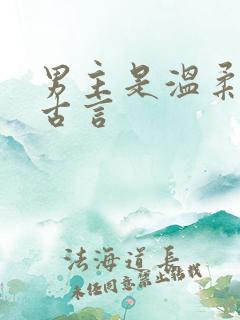 男主是温柔
古言
法海道長
未经同意禁止搭载